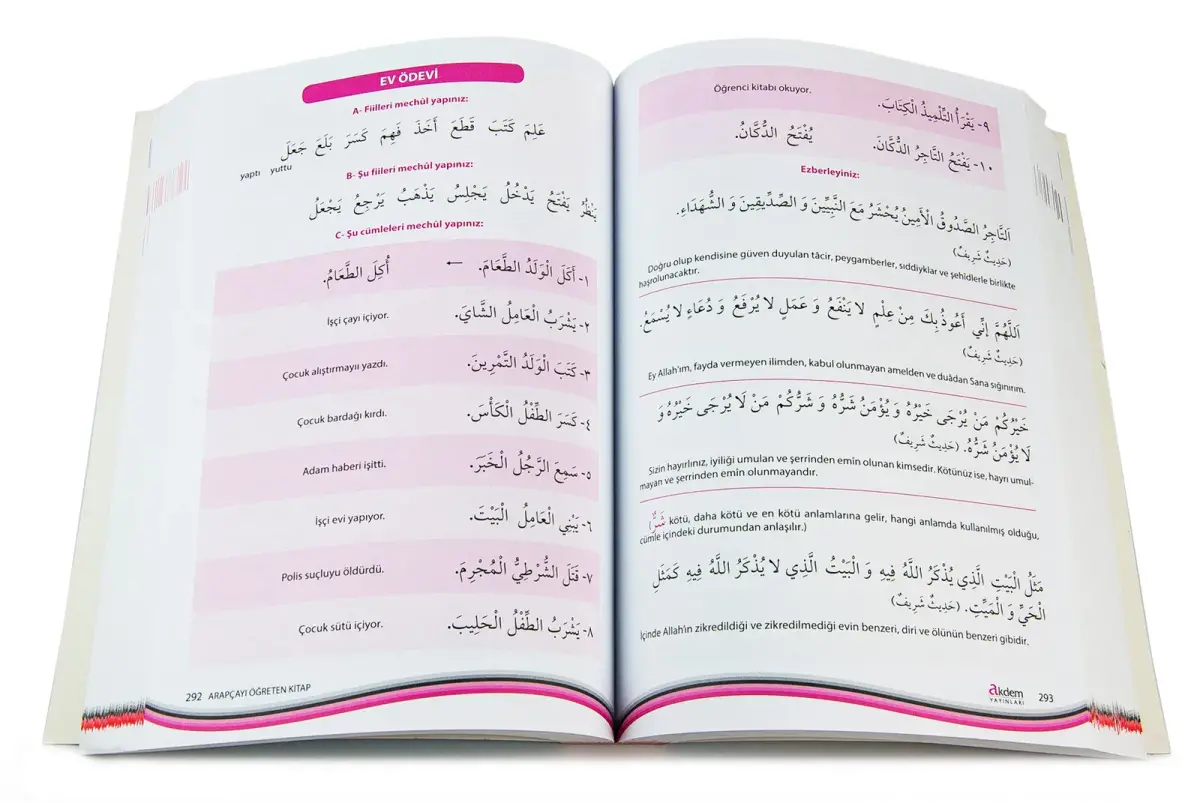 EV ÖDEVİ
A- Fiilleri mechûl yapınız:
عَلِمَ كَتَبَ قَطَعَ أَخَذَ فَهِمَ كَسَرَ بَلَعَ جَعَلَ
yaptı yuttu
B- Şu fiileri mechûl yapınız:
يَنْظُرُ يَفْتَحُ يَدْخُلُ يَجْلِسُ يَذْهَبُ يَرْجِعُ يَجْعَلُ
C- Şu cümleleri mechûl yapınız:
١- أَكَلَ الْوَلَدُ الطَّعَامَ. ← أُكِلَ الطَّعَامُ.
٢- يَشْرَبُ الْعَامِلُ الشَّايَ. İşçi çayı içiyor.
٣- كَتَبَ الْوَلَدُ التَّمْرِينَ. Çocuk alıştırmayıı yazdı.
٤- كَسَرَ الطِّفْلُ الْكَأْسَ. Çocuk bardağı kırdı.
٥- سَمِعَ الرَّجُلُ الْخَبَرَ. Adam haberi işitti.
٦- يَبْنِي الْعَامِلُ الْبَيْتَ. İşçi evi yapıyor.
٧- قَتَلَ الشُّرْطِيُّ الْمُجْرِمَ. Polis suçluyu öldürdü.
٨- يَشْرَبُ الطِّفْلُ الْحَلِيبَ. Çocuk sütü içiyor.
292 ARAPÇAYI ÖĞRETEN KİTAP
٩- يَقْرَأُ التِّلْمِيذُ الْكِتَابَ. Öğrenci kitabı okuyor.
١٠- يَفْتَحُ التَّاجِرُ الدُّكَّانَ. يُفْتَحُ الدُّكَّانُ.
Ezberleyiniz:
اَلتَّاجِرُ الصَّدُوقُ الْأَمِينُ يُحْشَرُ مَعَ النَّبِيِّينَ وَ الصِّدِّيقِينَ وَ الشُّهَدَاءِ.
(حَدِيثٌ شَرِيفٌ)
Doğru olup kendisine güven duyulan tâcir, peygamberler, sıddiyklar ve şehidlerle birlikte
haşrolunacaktır.
اَللَّهُمَّ إِنِّي أَعُوذُ بِكَ مِنْ عِلْمٍ لَا يَنْفَعُ وَ عَمَلٍ لَا يُرْفَعُ وَ دُعَاءٍ لَا يُسْمَعُ.
(حَدِيثٌ شَرِيفٌ)
Ey Allah'ım, fayda vermeyen ilimden, kabul olunmayan amelden ve duâdan Sana sığınırım.
خَيْرُكُمْ مَنْ يُرْجَى خَيْرُهُ وَ يُؤْمَنُ شَرُّهُ وَ شَرُّكُمْ مَنْ لَا يُرْجَى خَيْرُهُ وَ
لَا يُؤْمَنُ شَرُّهُ. (حَدِيثٌ شَرِيفٌ)
Sizin hayırlınız, iyiliği umulan ve şerrinden emîn olunan kimsedir. Kötünüz ise, hayrı umul-
mayan ve şerrinden emîn olunmayandır.
(شَرٌّ kötü, daha kötü ve en kötü anlamlarına gelir, hangi anlamda kullanılmış olduğu,
cümle içindeki durumundan anlaşılır.)
مَثَلُ الْبَيْتِ الَّذِي يُذْكَرُ اللَّهُ فِيهِ وَ الْبَيْتُ الَّذِي لَا يُذْكَرُ اللَّهُ فِيهِ كَمَثَلِ
الْحَيِّ وَ الْمَيِّتِ. (حَدِيثٌ شَرِيفٌ)
İçinde Allah'ın zikredildiği ve zikredilmediği evin benzeri, diri ve ölünün benzeri gibidir.
akdem
YAYINLARI
293